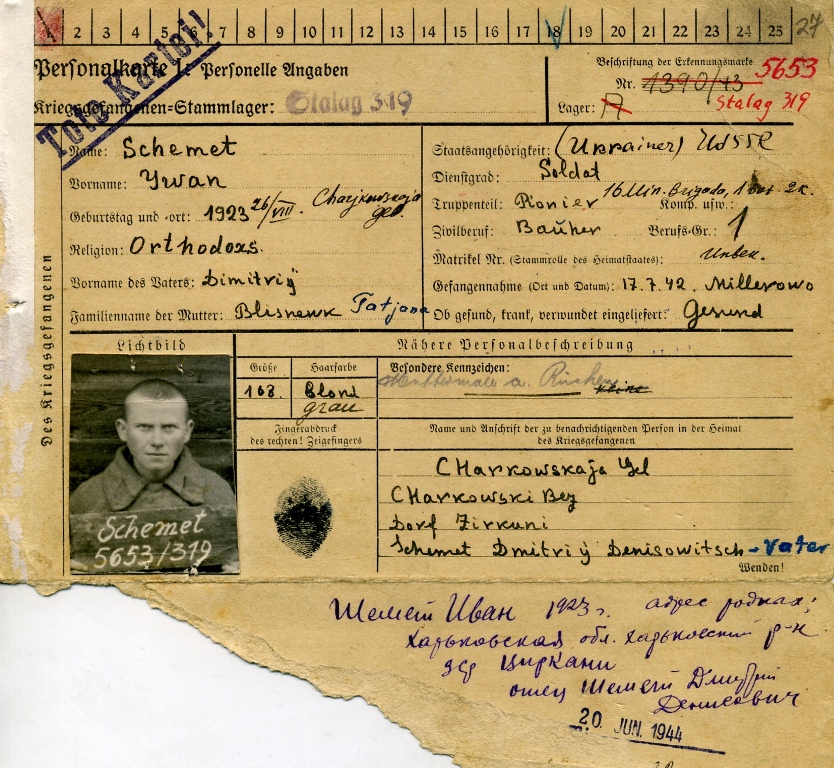 1 2 3 4 5 6 7 8 9 10 11 12 13 14 15 16 17 18 19 20 21 22 23 24 25 27
Tote Kartei!
Personalkarte I: Personelle Angaben
Kriegsgefangenen-Stammlager: Stalag 319
Beschriftung der Erkennungsmarke
Nr. 1390/43 5653
Lager: A Stalag 319
Des Kriegsgefangenen
Name: Schemet
Vorname: Ywan
Geburtstag und -ort: 1923 26/VIII. Charjkowskaja geb.
Religion: Orthodoxs.
Vorname des Vaters: Dimitriÿ
Familienname der Mutter: Blisnewk Tatjana
Staatsangehörigkeit: (Ukrainer) UdSSR
Dienstgrad: Soldat
Truppenteil: Pionier 16 Min. Brigada, 1 bat 2k. Komp. usw.:
Zivilberuf: Bauher Berufs-Gr.: 1
Matrikel Nr. (Stammrolle des Heimatstaates): Unbek.
Gefangennahme (Ort und Datum): 17.7.42. Millerowo
Ob gesund, krank, verwundet eingeliefert: Gesund
Lichtbild
Nähere Personalbeschreibung
Größe Haarfarbe Besondere Kennzeichen:
168. Blond
grau
Muttermale a. Rücken
Fingerabdruck
des rechten! Zeigefingers
Name und Anschrift der zu benachrichtigenden Person in der Heimat
des Kriegsgefangenen
CHarkowskaja Gel
CHarkowski Bez
Dorf Zirkuni
Schemet Dmitriÿ Denisowitsch - Vater
Wenden!
Schemet
5653/319
Шемет Иван 1923 г. адрес родных:
Харьковская обл. Харьковский р-н
дер Циркани
отец Шемет Дмитрий
Денисович
20. JUN. 1944